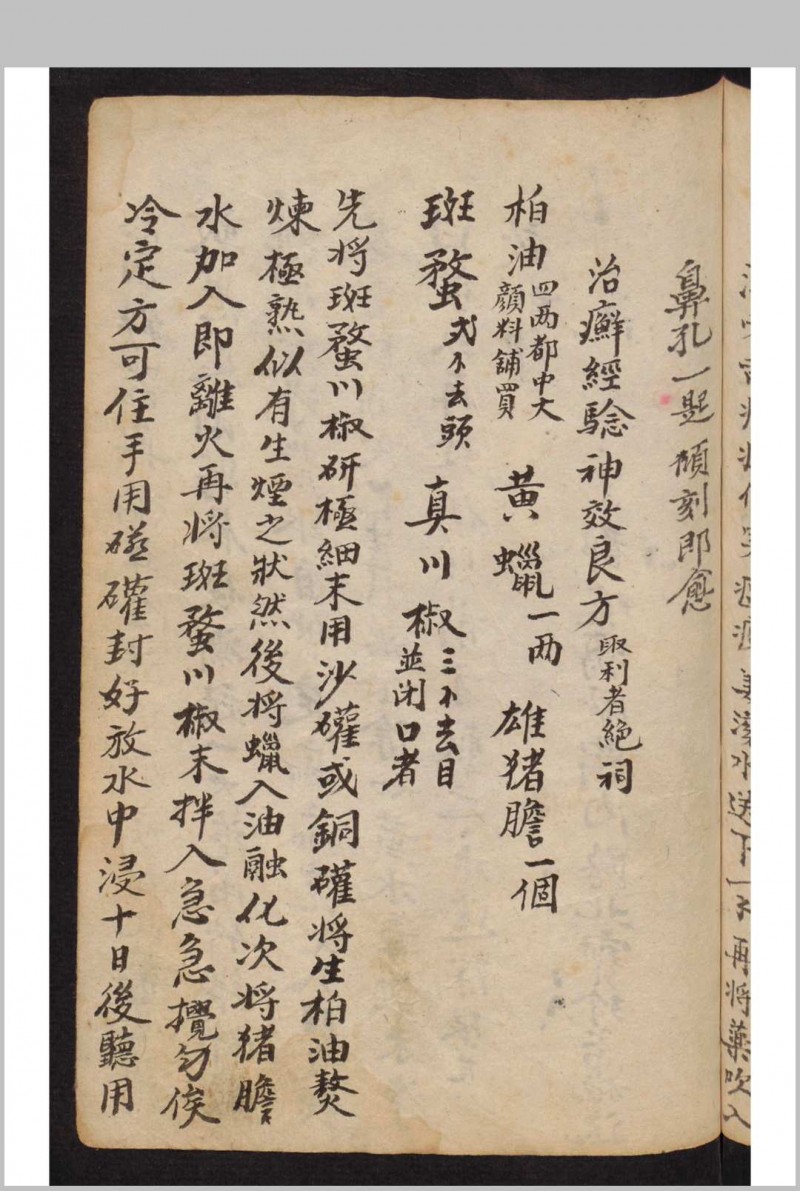 水送下一 再將藥吹入
鼻孔一匙頃刻即愈
治癬經驗神效良方 取利者絕祠
柏油 四两都中大
顏料舖買 黃蠟一两 雄猪膽一個
斑蝥 弍个去頭 真川椒 三个去目
並闭口者
先将斑蝥川椒研極細末用沙礶或銅礶将生柏油熬
煉極熟似有生煙之狀然後将蠟入油融化次将猪膽
水加入即離火再将斑蝥川椒末拌入急急攪匀俟
冷定方可住手用磁礶封好放水中浸十日後聽用